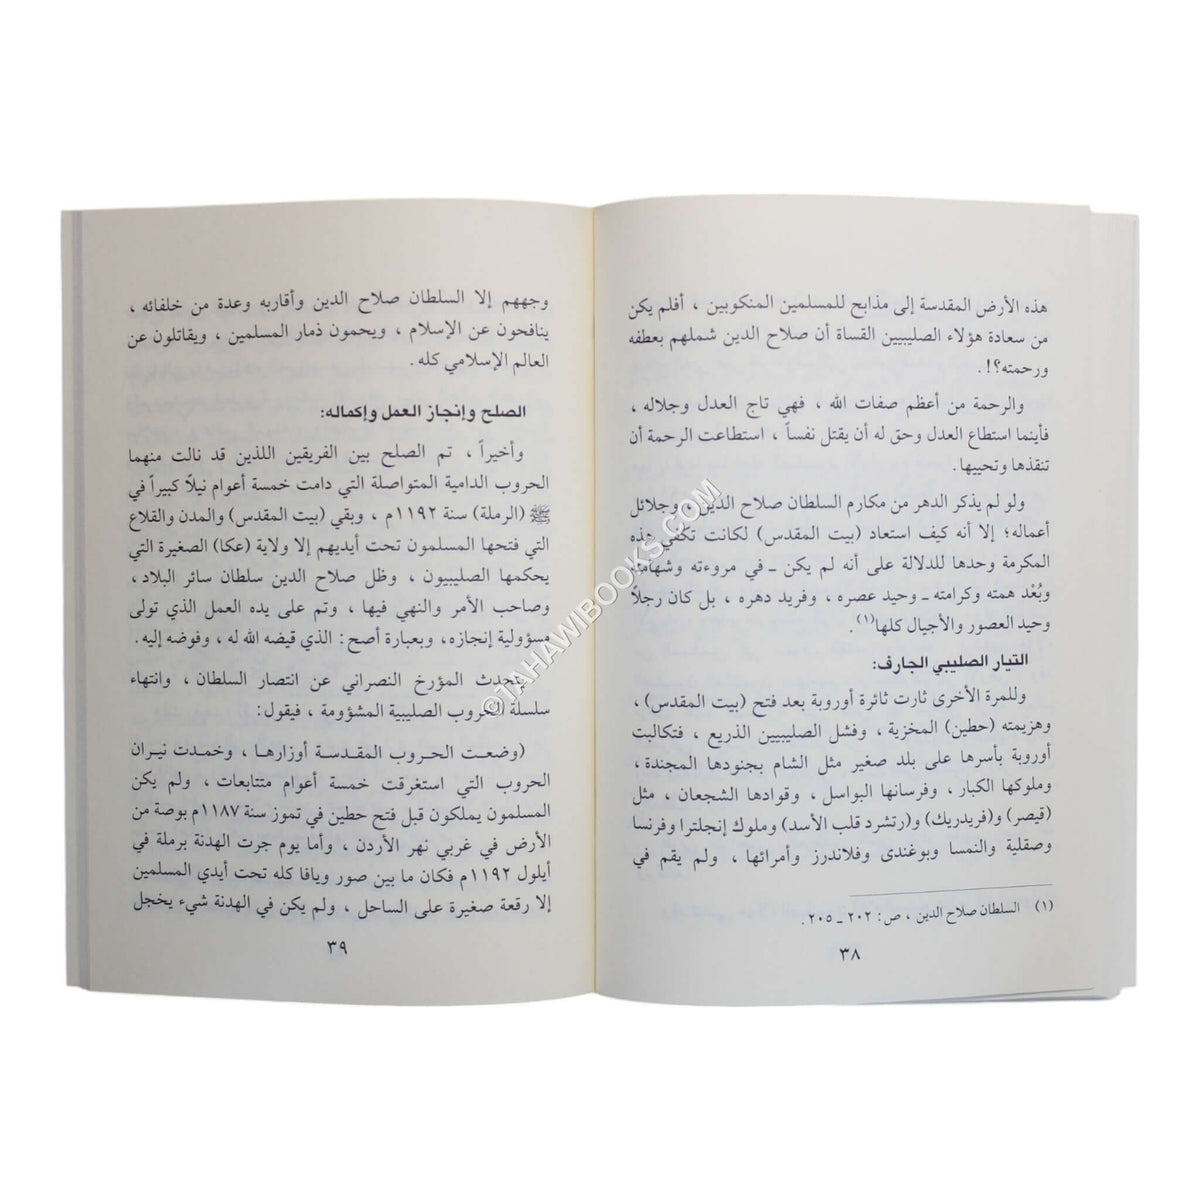 هذه الأرض المقدسة إلى مذابح للمسلمين المنكوبين ، أفلم يكن
من سعادة هؤلاء الصليبيين القساة أن صلاح الدين شملهم بعطفه
ورحمته؟! .
والرحمة من أعظم صفات الله ، فهي تاج العدل وجلاله ،
فأينما استطاع العدل وحق له أن يقتل نفساً ، استطاعت الرحمة أن
تنقذها وتحييها.
ولو لم يذكر الدهر من مكارم السلطان صلاح الدين ، وجلائل
أعماله؛ إلا أنه كيف استعاد (بيت المقدس) لكانت تكفي هذه
المكرمة وحدها للدلالة على أنه لم يكن ـ في مروءته وشهامته
وبُعْد همته وكرامته ـ وحيد عصره ، وفريد دهره ، بل كان رجلاً
وحيد العصور والأجيال كلها(١).
التيار الصليبي الجارف:
وللمرة الأخرى ثارت ثائرة أوروبة بعد فتح (بيت المقدس) ،
وهزيمته (حطين) المخزية ، وفشل الصليبيين الذريع ، فتكالبت
أوروبة بأسرها على بلد صغير مثل الشام بجنودها المجندة ،
وملوكها الكبار ، وفرسانها البواسل ، وقوادها الشجعان ، مثل
(قيصر) و(فريدريك) و(رتشرد قلب الأسد) وملوك إنجلترا وفرنسا
وصقلية والنمسا وبوغندى وفلاندرز وأمرائها ، ولم يقم في
(١) السلطان صلاح الدين ، ص: ٢٠٢ ـ ٢٠٥ .
٣٨
وجههم إلا السلطان صلاح الدين وأقاربه وعدة من خلفائه ،
ينافحون عن الإسلام ، ويحمون ذمار المسلمين ، ويقاتلون عن
العالم الإسلامي كله .
الصلح وإنجاز العمل وإكماله:
وأخيراً ، تم الصلح بين الفريقين اللذين قد نالت منهما
الحروب الدامية المتواصلة التي دامت خمسة أعوام نيلاً كبيراً في
ﷺ (الرملة) سنة ١١٩٢م ، وبقي (بيت المقدس) والمدن والقلاع
التي فتحها المسلمون تحت أيديهم إلا ولاية (عكا) الصغيرة التي
يحكمها الصليبيون ، وظل صلاح الدين سلطان سائر البلاد ،
وصاحب الأمر والنهي فيها ، وتم على يده العمل الذي تولى
مسؤولية إنجازه، وبعبارة أصح: الذي قيضه الله له ، وفوضه إليه.
يتحدث المؤرخ النصراني عن انتصار السلطان ، وانتهاء
سلسلة الحروب الصليبية المشؤومة ، فيقول:
(وضعت الحروب المقدسة أوزارها ، وخمدت نيران
الحروب التي استغرقت خمسة أعوام متتابعات ، ولم يكن
المسلمون يملكون قبل فتح حطين في تموز سنة ١١٨٧م بوصة من
الأرض في غربي نهر الأردن ، وأما يوم جرت الهدنة برملة في
أيلول ١١٩٢م فكان ما بين صور ويافا كله تحت أيدي المسلمين
إلا رقعة صغيرة على الساحل ، ولم يكن في الهدنة شيء يخجل
٣٩
©TAHAWIBOOKS.COM